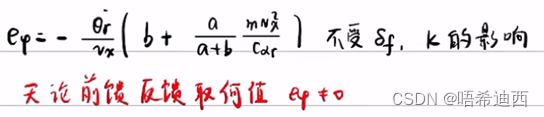 eφ = - θ̇r/vx ( b + a/(a+b) · mvx²/Cαr ) 不受 δf, K 的影响
无论前馈反馈取何值 eφ ≠ 0
CSDN @唔希迪西